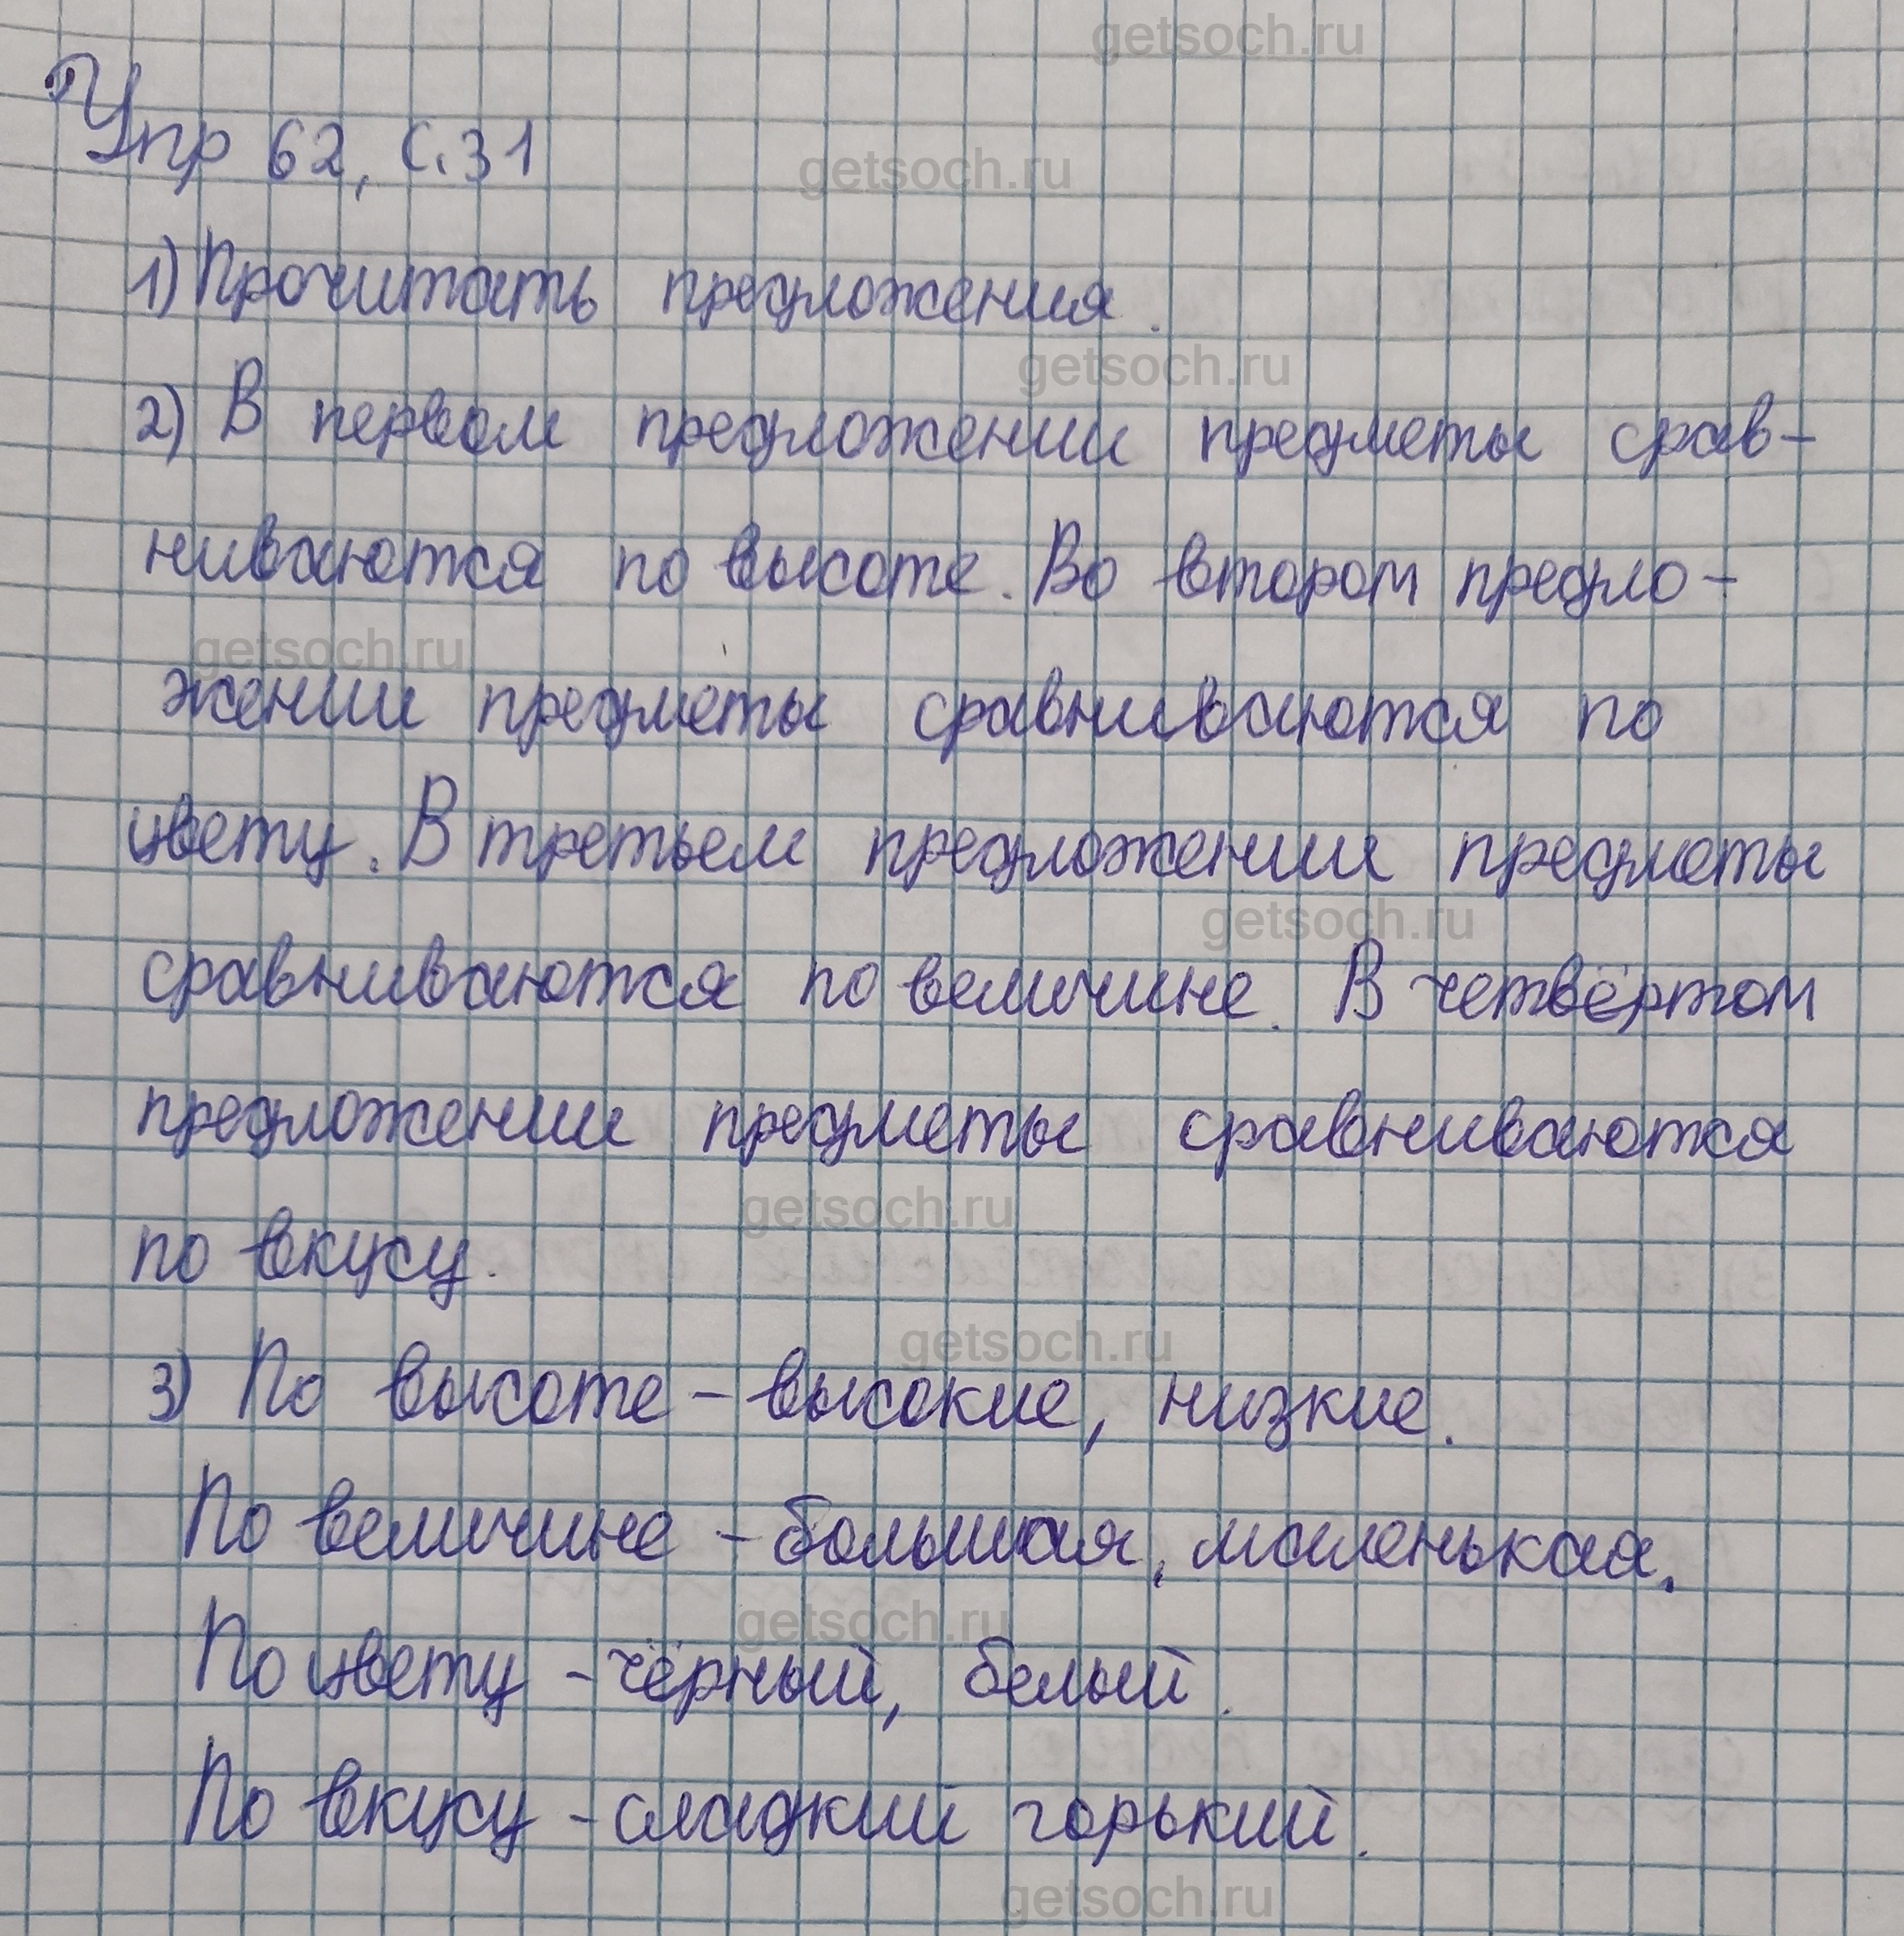 getsoch.ru
Упр 62, с. 31
getsoch.ru
1) Прочитать предложения.
getsoch.ru
2) В первом предложении предметы срав-
ниваются по высоте. Во втором предло-
getsoch.ru
жении предметы сравниваются по
цвету. В третьем предложении предметы
getsoch.ru
сравниваются по величине. В четвёртом
предложении предметы сравниваются
getsoch.ru
по вкусу.
getsoch.ru
3) По высоте – высокие, низкие.
По величине – большая, маленькая.
getsoch.ru
По цвету – чёрный, белый.
По вкусу – сладкий горький.
getsoch.ru